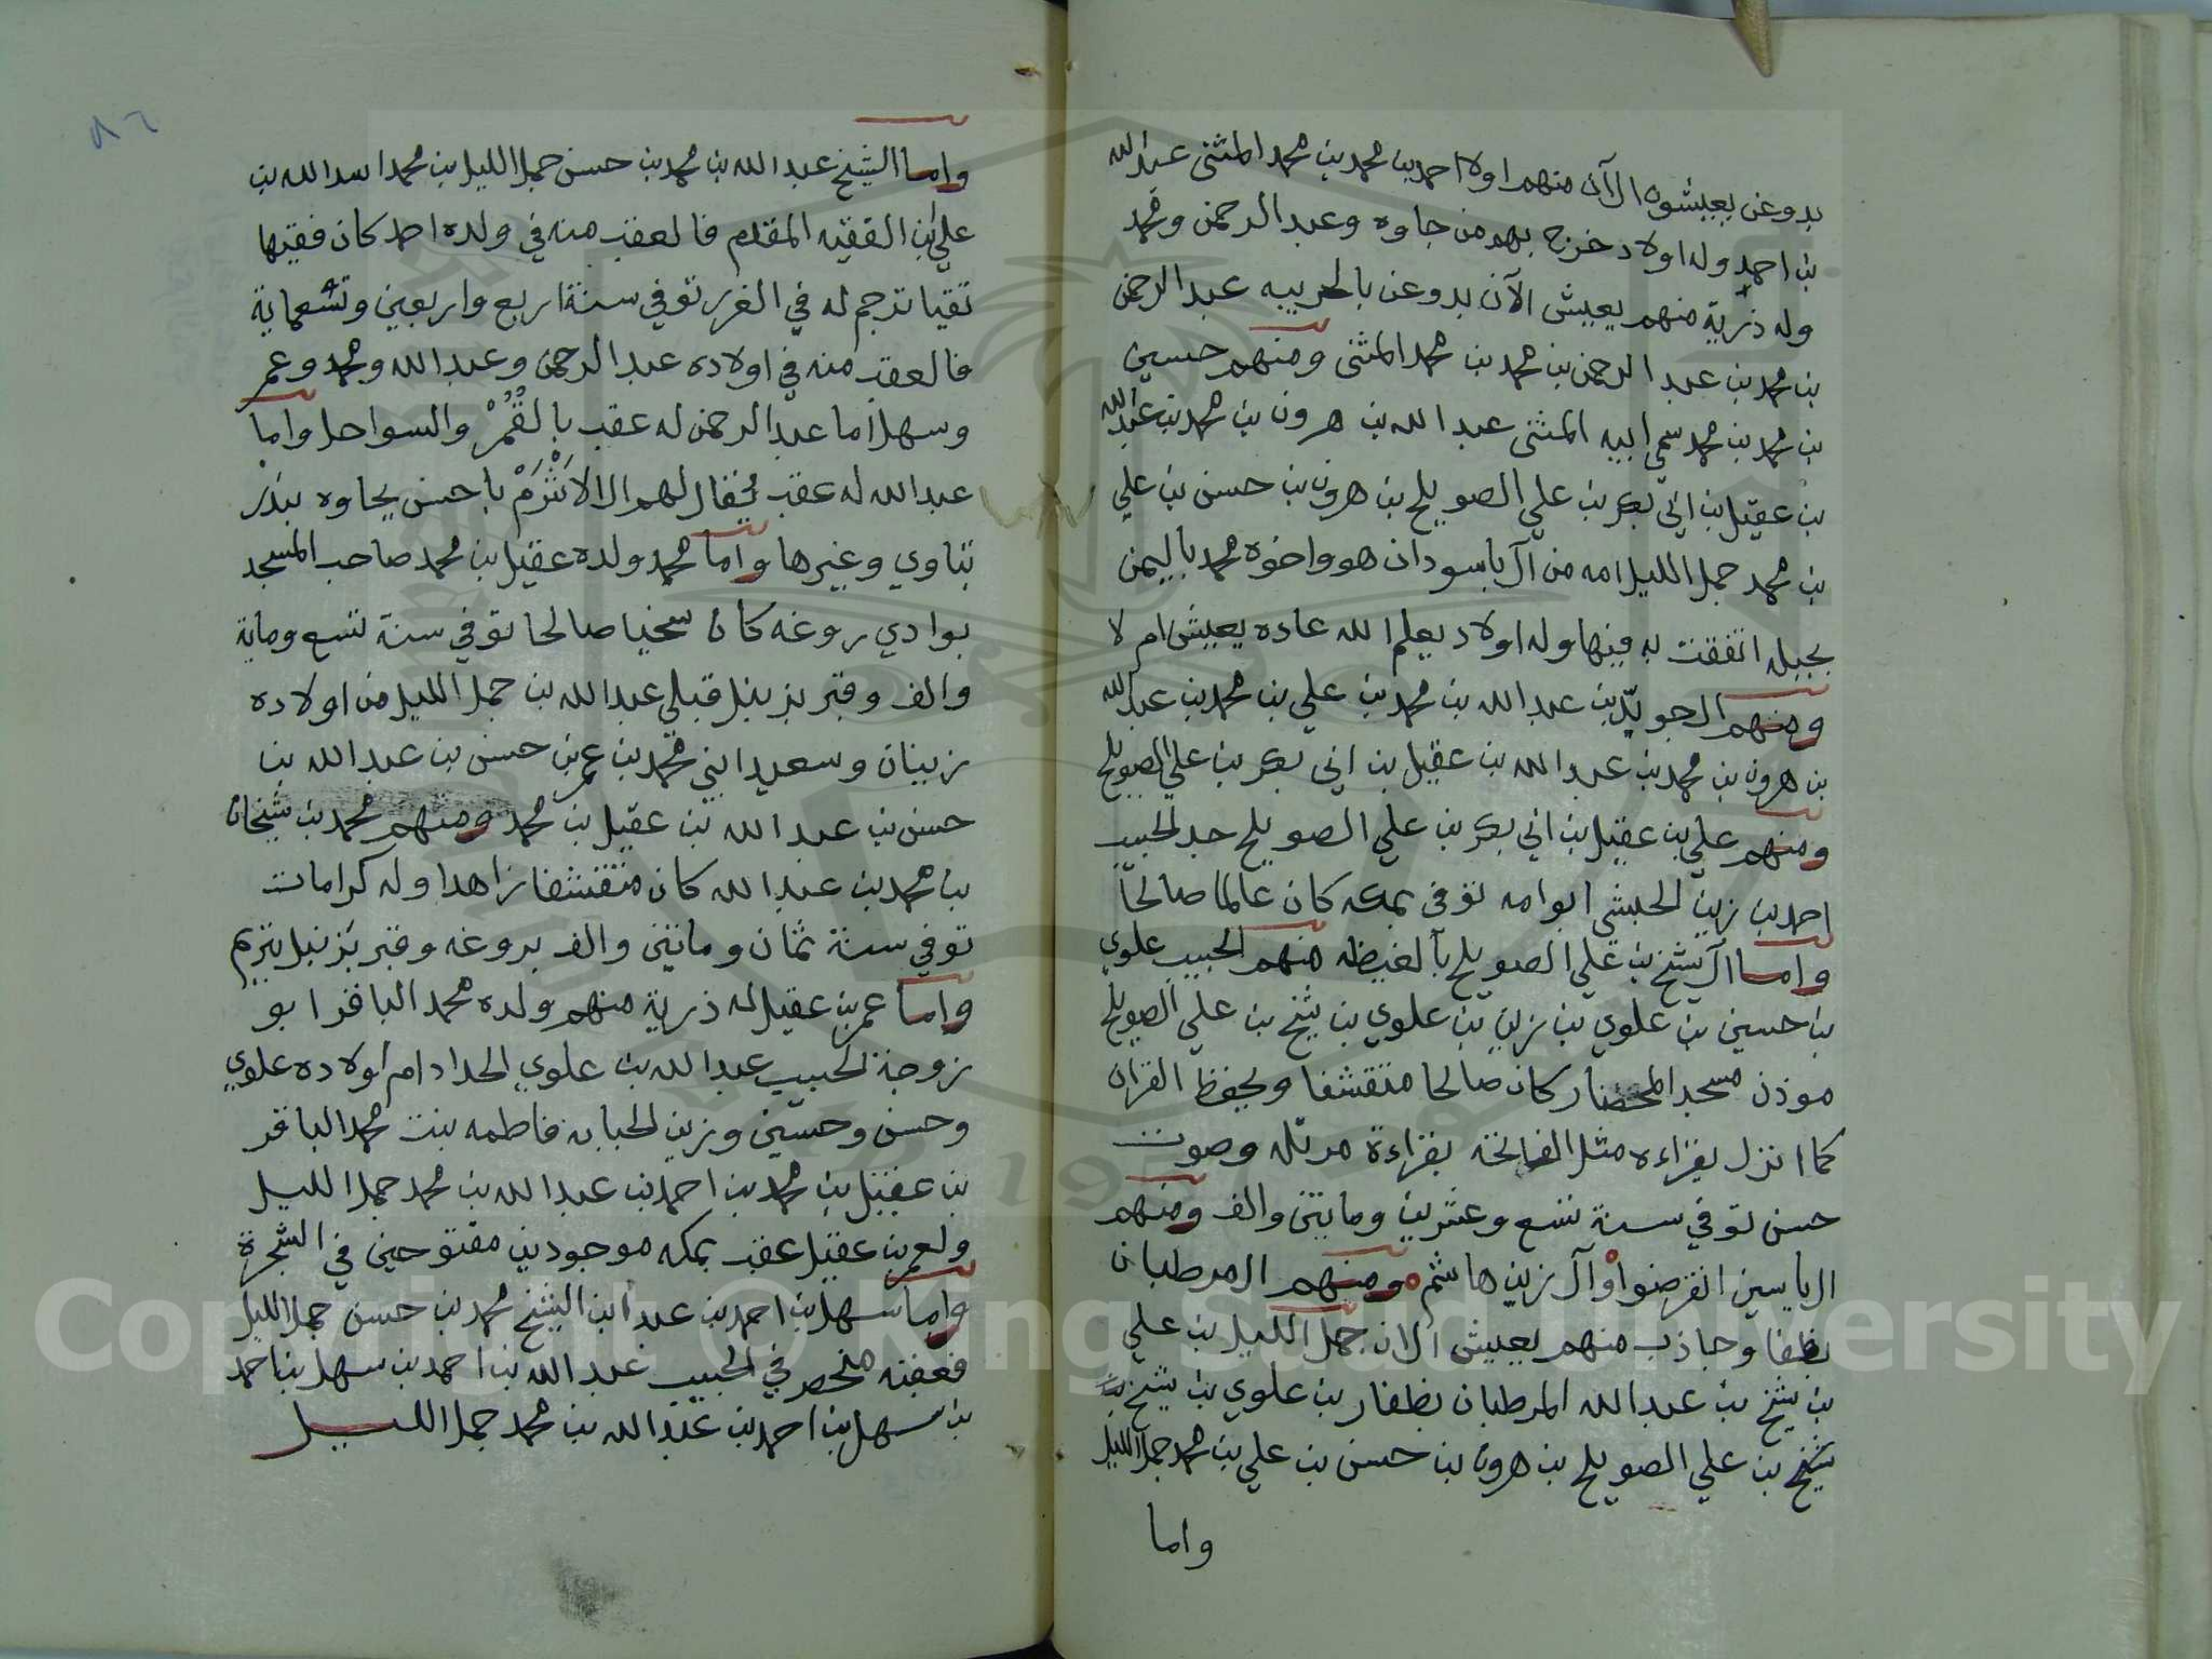 بدوعن يعيشون الآن منهم اولاد احمد بن محمد بن محمد المثنى عبدالله
بن احمد وله اولاد خرج بهم من جاوه وعبد الرحمن ومحمد
وله ذرية منهم يعيش الآن بدوعن بالحريبه عبد الرحمن
بن محمد بن عبد الرحمن بن محمد بن محمد المثنى ومنهم حسين
بن محمد بن محمد سمي ابيه المثنى عبد الله بن هرون بن محمد بن عبدالله
بن عقيل بن ابي بكر بن علي الصويلح بن هرون بن حسن بن علي
بن محمد جمل الليل امه من آل باسودان هو واخوه محمد باليمن
بجبله اتفقت به فيها وله اولاد يعلم الله عاده يعيش ام لا
ومنهم الجويد بن عبد الله بن محمد بن علي بن محمد بن عبدالله
بن هرون بن محمد بن عبد الله بن عقيل بن ابي بكر بن علي الصويلح
ومنهم علي بن عقيل بن ابي بكر بن علي الصويلح جد الحبيب
احمد بن زين الحبشي ابوامه توفي بمكه كان عالما صالحا
واما آل شيخ بن علي الصويلح بآلغيظه منهم الحبيب علوي
بن حسين بن علوي بن زين بن علوي بن شيخ بن علي الصويلح
موذن مسجد المحضار كان صالحا متقشفا ويحفظ القران
كما انزل يقراءه مثل الفاتحة بقراءة مرتله وصوت
حسن توفي سنة تسع وعشرين ومايتين والف ومنهم
ال ياسين انقرضوا وآل زين هاشم ومنهم المرطبان
بظفار وجاذب منهم يعيش الان جمل الليل بن علي
بن شيخ بن عبد الله المرطبان بظفار بن علوي بن شيخ بن
شيخ بن علي الصويلح بن هرون بن حسن بن علي بن محمد جمل الليل
واما
٨٦
واما الشيخ عبد الله بن محمد بن حسن جمل الليل بن محمد اسد الله بن
علي بن الفقيه المقدم فالعقب منه في ولده احمد كان فقيها
تقيا ترجم له في الغرر توفي سنة اربع واربعين وتسعماية
فالعقب منه في اولاده عبد الرحمن وعبد الله ومحمد وعمر
وسهل اما عبد الرحمن له عقب بالقُمُرْ والسواحل واما
عبد الله له عقب يقال لهم ال الاَثْرَمْ باحسن بجاوه ببندر
بتاوي وغيرها واما محمد ولده عقيل بن محمد صاحب المسجد
بوادي روغه كان سخيا صالحا توفي سنة تسع وماية
والف وقبر بزنبل قبلي عبد الله بن جمل الليل من اولاده
زبينان وسعيد ابني محمد بن عمر بن حسن بن عبد الله بن
حسن بن عبد الله بن عقيل بن محمد ومنهم محمد بن شيخان
بن محمد بن عبد الله كان متقشفا زاهدا وله كرامات
توفي سنة ثمان ومايتين والف بروغه وقبر بزنبل بتريم
واما عمر بن عقيل له ذرية منهم ولده محمد الباقر ابو
زوجة الحبيب عبد الله بن علوي الحداد ام اولاده علوي
وحسن وحسين وزين الحبابه فاطمه بنت محمد الباقر
بن عقيل بن محمد بن احمد بن عبد الله بن محمد جمل الليل
ولعمر بن عقيل عقب بمكه موجودين مفتوحين في الشجرة
واما سهل بن احمد بن عبد الله بن الشيخ محمد بن حسن جمل الليل
فعقبه منحصر في الحبيب عبد الله بن احمد بن سهل بن احمد
بن سهل بن احمد بن عبد الله بن محمد جمل الليل
Copyright © King Saud University